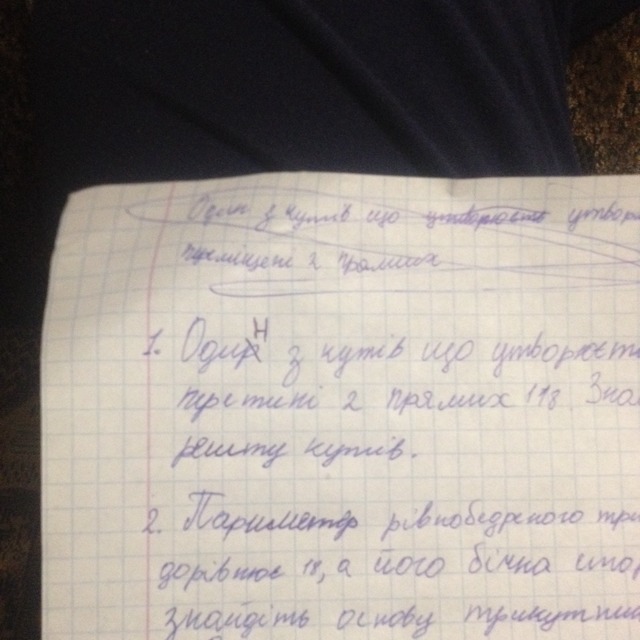 Один з кутів що утворю
перетині 2 прямих
1. Один з кутів що утворюєт
перетині 2 прямих 118. Зна
решту кутів.
2. Париметр рівнобедреного три
дорівнює 18, а його бічна стор
знайдіть основу трикутни